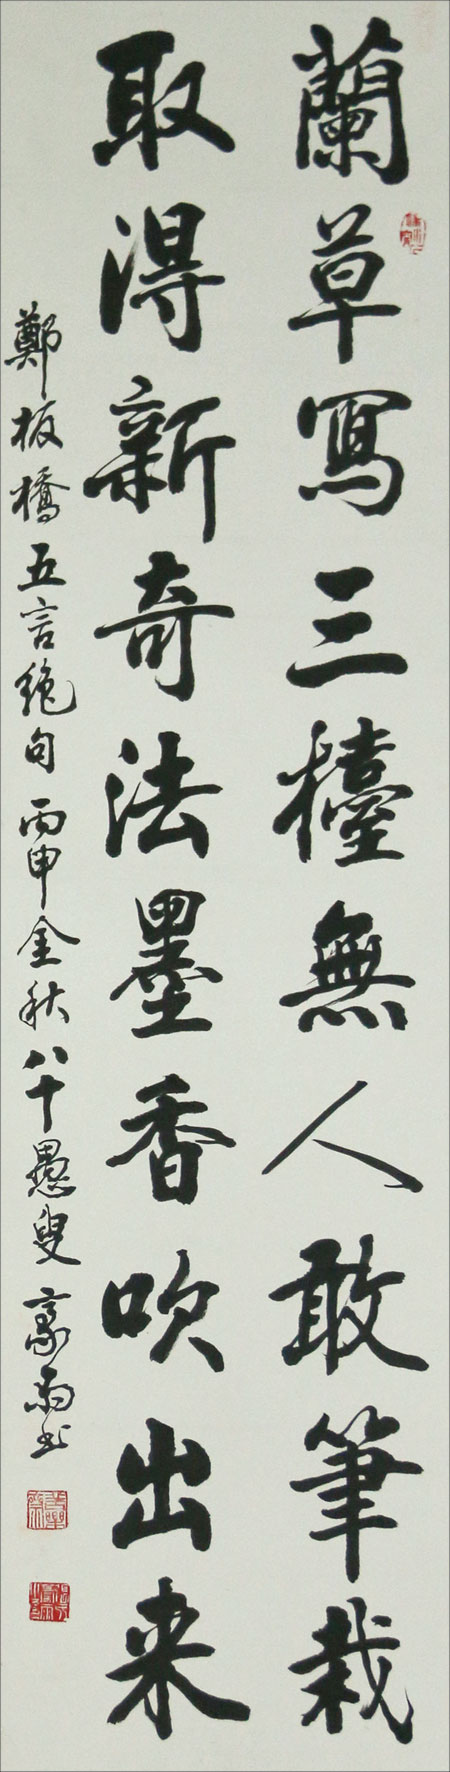 蘭草寫三檯無人敢筆栽
取得新奇法墨香吹出来
鄭板橋五言絶句丙申金秋八十愚叟豪雨书